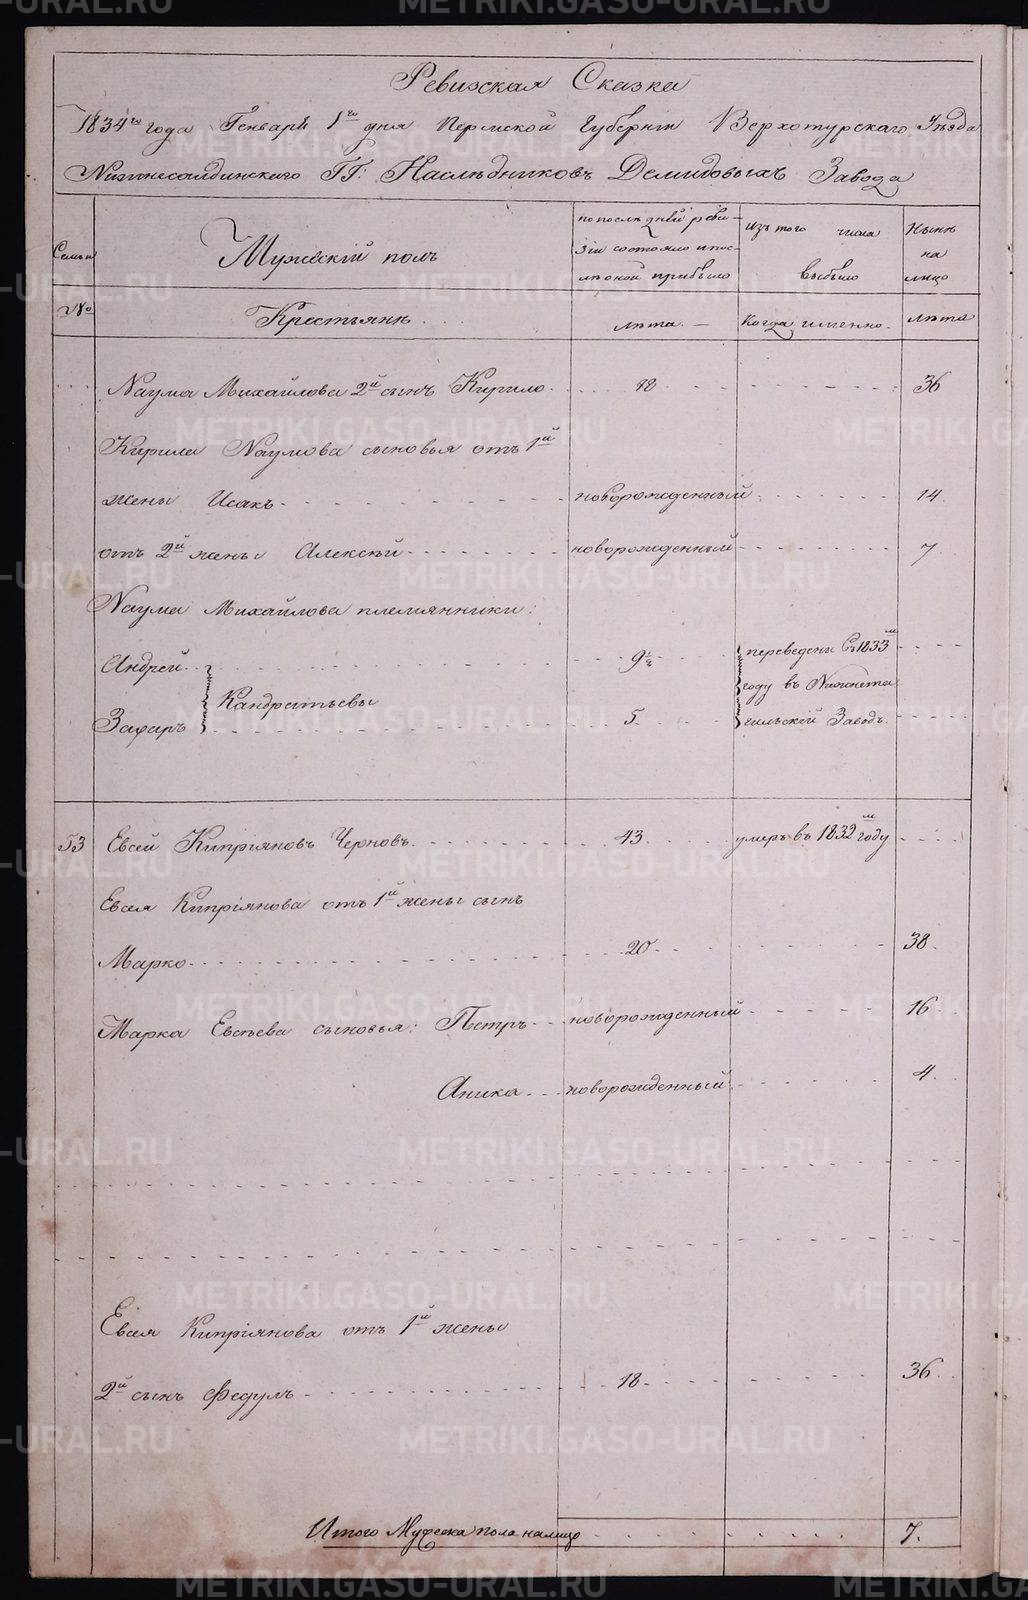 Ревизская Сказка
1834го года Генваря 1го дня Пермской Губернiи Верхотурскаго Уѣзда
Нижнесалдинскаго ГГ: Наслѣдниковъ Демидовыхъ Завода
Семьи
Мужескiй полъ
по послѣдней реви-
зiи состояло и пос-
лѣ оной прибыло
Изъ того числа
выбыло
Нынѣ
на
лицо
№
Крестьянѣ
лѣта. —
Когда именно.
лѣта
Наума Михайлова 2й сынъ Кирило 18 36
Кирила Наумова сыновья отъ 1й
жены Исакъ новорожденный 14
отъ 2й жены Алексѣй новорожденный 7
Наума Михайлова племянники:
Андрей 9½ переведены въ 1833м
Кандратьевы году въ Нижнета
Захаръ 5. гильскiй Заводъ.
53 Евсей Кипрiяновъ Черновъ 43 умеръ въ 1832м году
Евсея Кипрiянова отъ 1й жены сынъ
Марко 20 38
Марка Евсѣева сыновья: Петръ новорожденный 16
Аника новорожденный 4
Евсея Кипрiянова отъ 1й жены
2й сынъ Федулъ 18 36
Итого Мужеска пола налицо 7.
METRIKI.GASO-URAL.RU